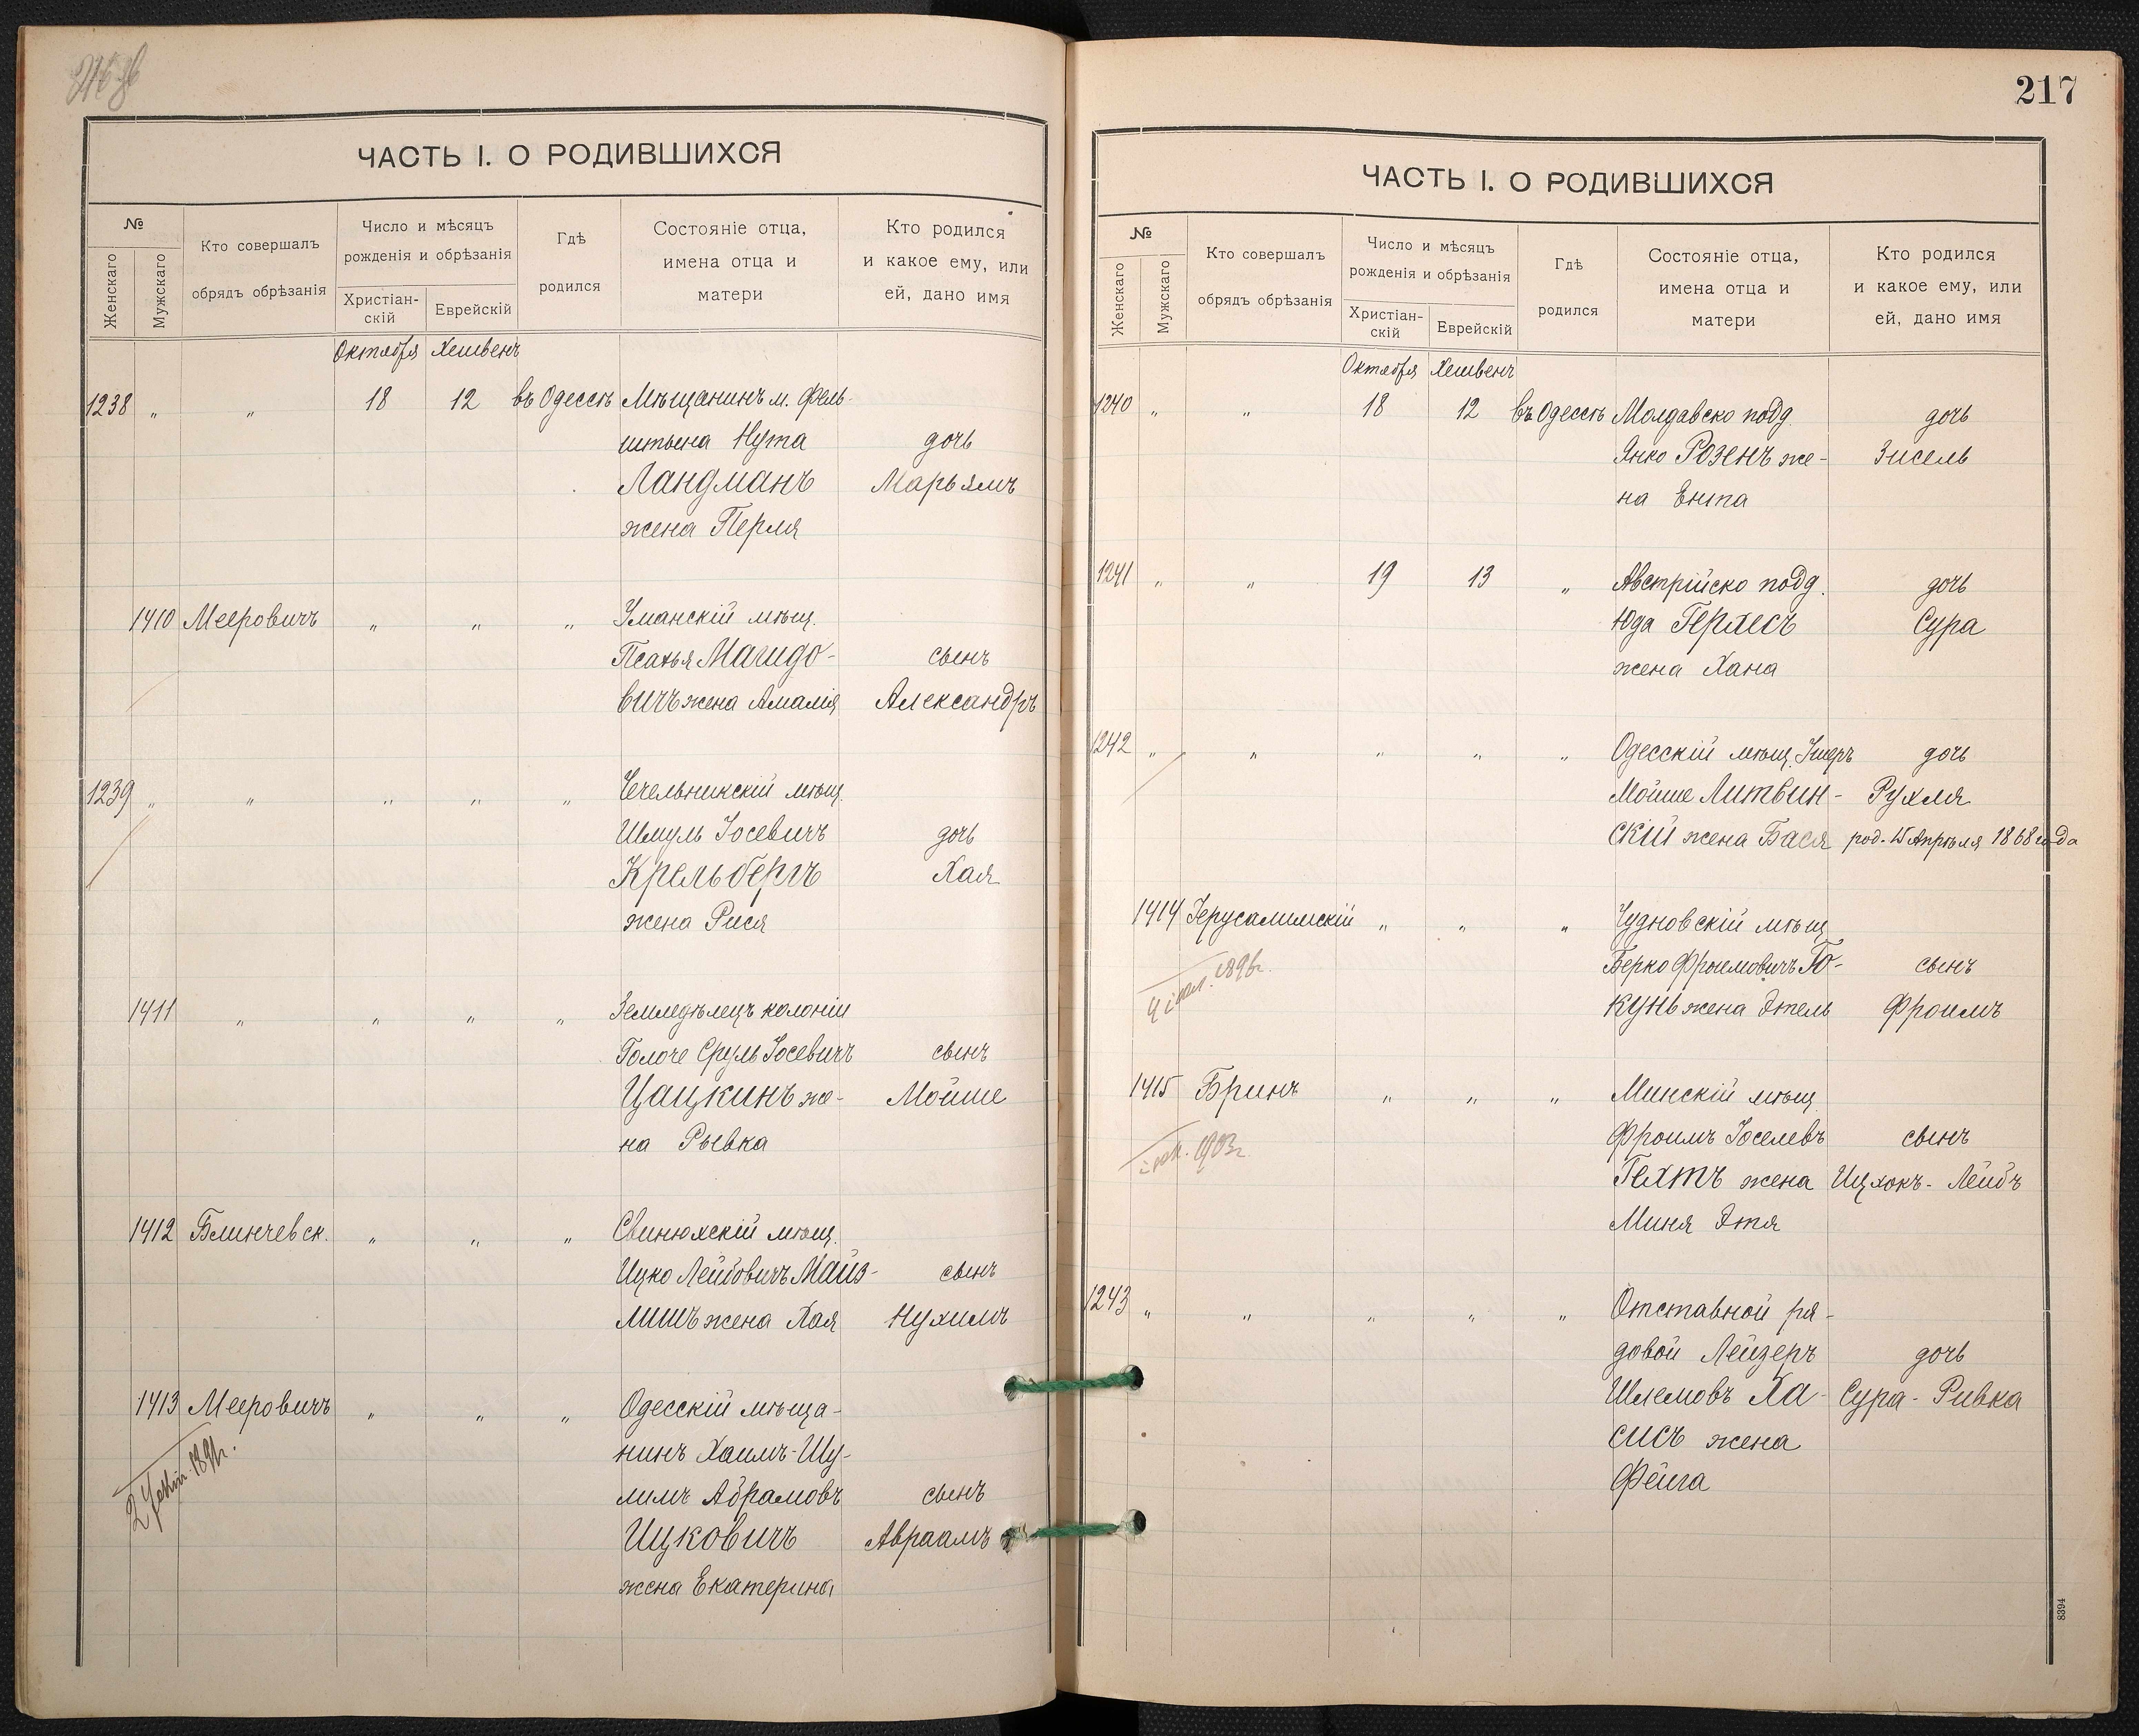 ЧАСТЬ I. О РОДИВШИХСЯ
№
Женскаго
Мужскаго
Кто совершалъ
обрядъ обрѣзанія
Число и мѣсяцъ
рожденія и обрѣзанія
Христіан-
скій
Еврейскій
Гдѣ
родился
Состояніе отца,
имена отца и
матери
Кто родился
и какое ему, или
ей, дано имя
Октября Хешвенъ
1238 " " 18 12 въ Одессѣ Мѣщанинъ м. Фель-
штына Нута дочь
Ландманъ Марьямъ
жена Перля
1410 Мееровичъ " " " Уманскій мѣщ.
Псахья Магидо- сынъ
вичъ жена Амалія Александръ
1239 " " " " " Чечельникскій мѣщ.
Шмуль Іосевичъ дочь
Крельбергъ Хая
жена Рися
1411 " " " " Земледѣлецъ колоніи
Голоче Сруль Іосевичъ сынъ
Цацкинъ же- Мойше
на Рывка
1412 Блинчевск. " " " Свинюхскій мѣщ.
Ицко Лейбовичъ Майз- сынъ
лишъ жена Хая Нухимъ
1413 Мееровичъ " " " Одесскій мѣща-
нинъ Хаимъ-Шу-
лимъ Абрамовъ сынъ
Ицковичъ Авраамъ
жена Екатерина
217
ЧАСТЬ I. О РОДИВШИХСЯ
№
Женскаго
Мужскаго
Кто совершалъ
обрядъ обрѣзанія
Число и мѣсяцъ
рожденія и обрѣзанія
Христіан-
скій
Еврейскій
Гдѣ
родился
Состояніе отца,
имена отца и
матери
Кто родился
и какое ему, или
ей, дано имя
Октября Хешвенъ
1240 " " 18 12 въ Одессѣ Молдавско подд. дочь
Янко Розенъ же- Зисель
на Ента
1241 " " 19 13 " Австрійско подд. дочь
Юда Герхесъ Сура
жена Хана
1242 " " " " " Одесскій мѣщ. Ушеръ дочь
Мойше Литвин- Рухля
скій жена Бася род. 15 Апрѣля 1868 года
1414 Іерусалимскій " " " Чудновскій мѣщ.
Берко Фроимовичъ То- сынъ
кунь жена Этель Фроимъ
1896г.
1415 Бринъ " " " Минскій мѣщ.
Фроимъ Іоселевъ сынъ
Гехтъ жена Ицхокъ-Лейбъ
Миня Этя
1903г.
1243 " " " " " Отставной ря-
довой Лейзеръ дочь
Шлемовъ Ха- Сура-Ривка
сисъ жена
Фейга
8394